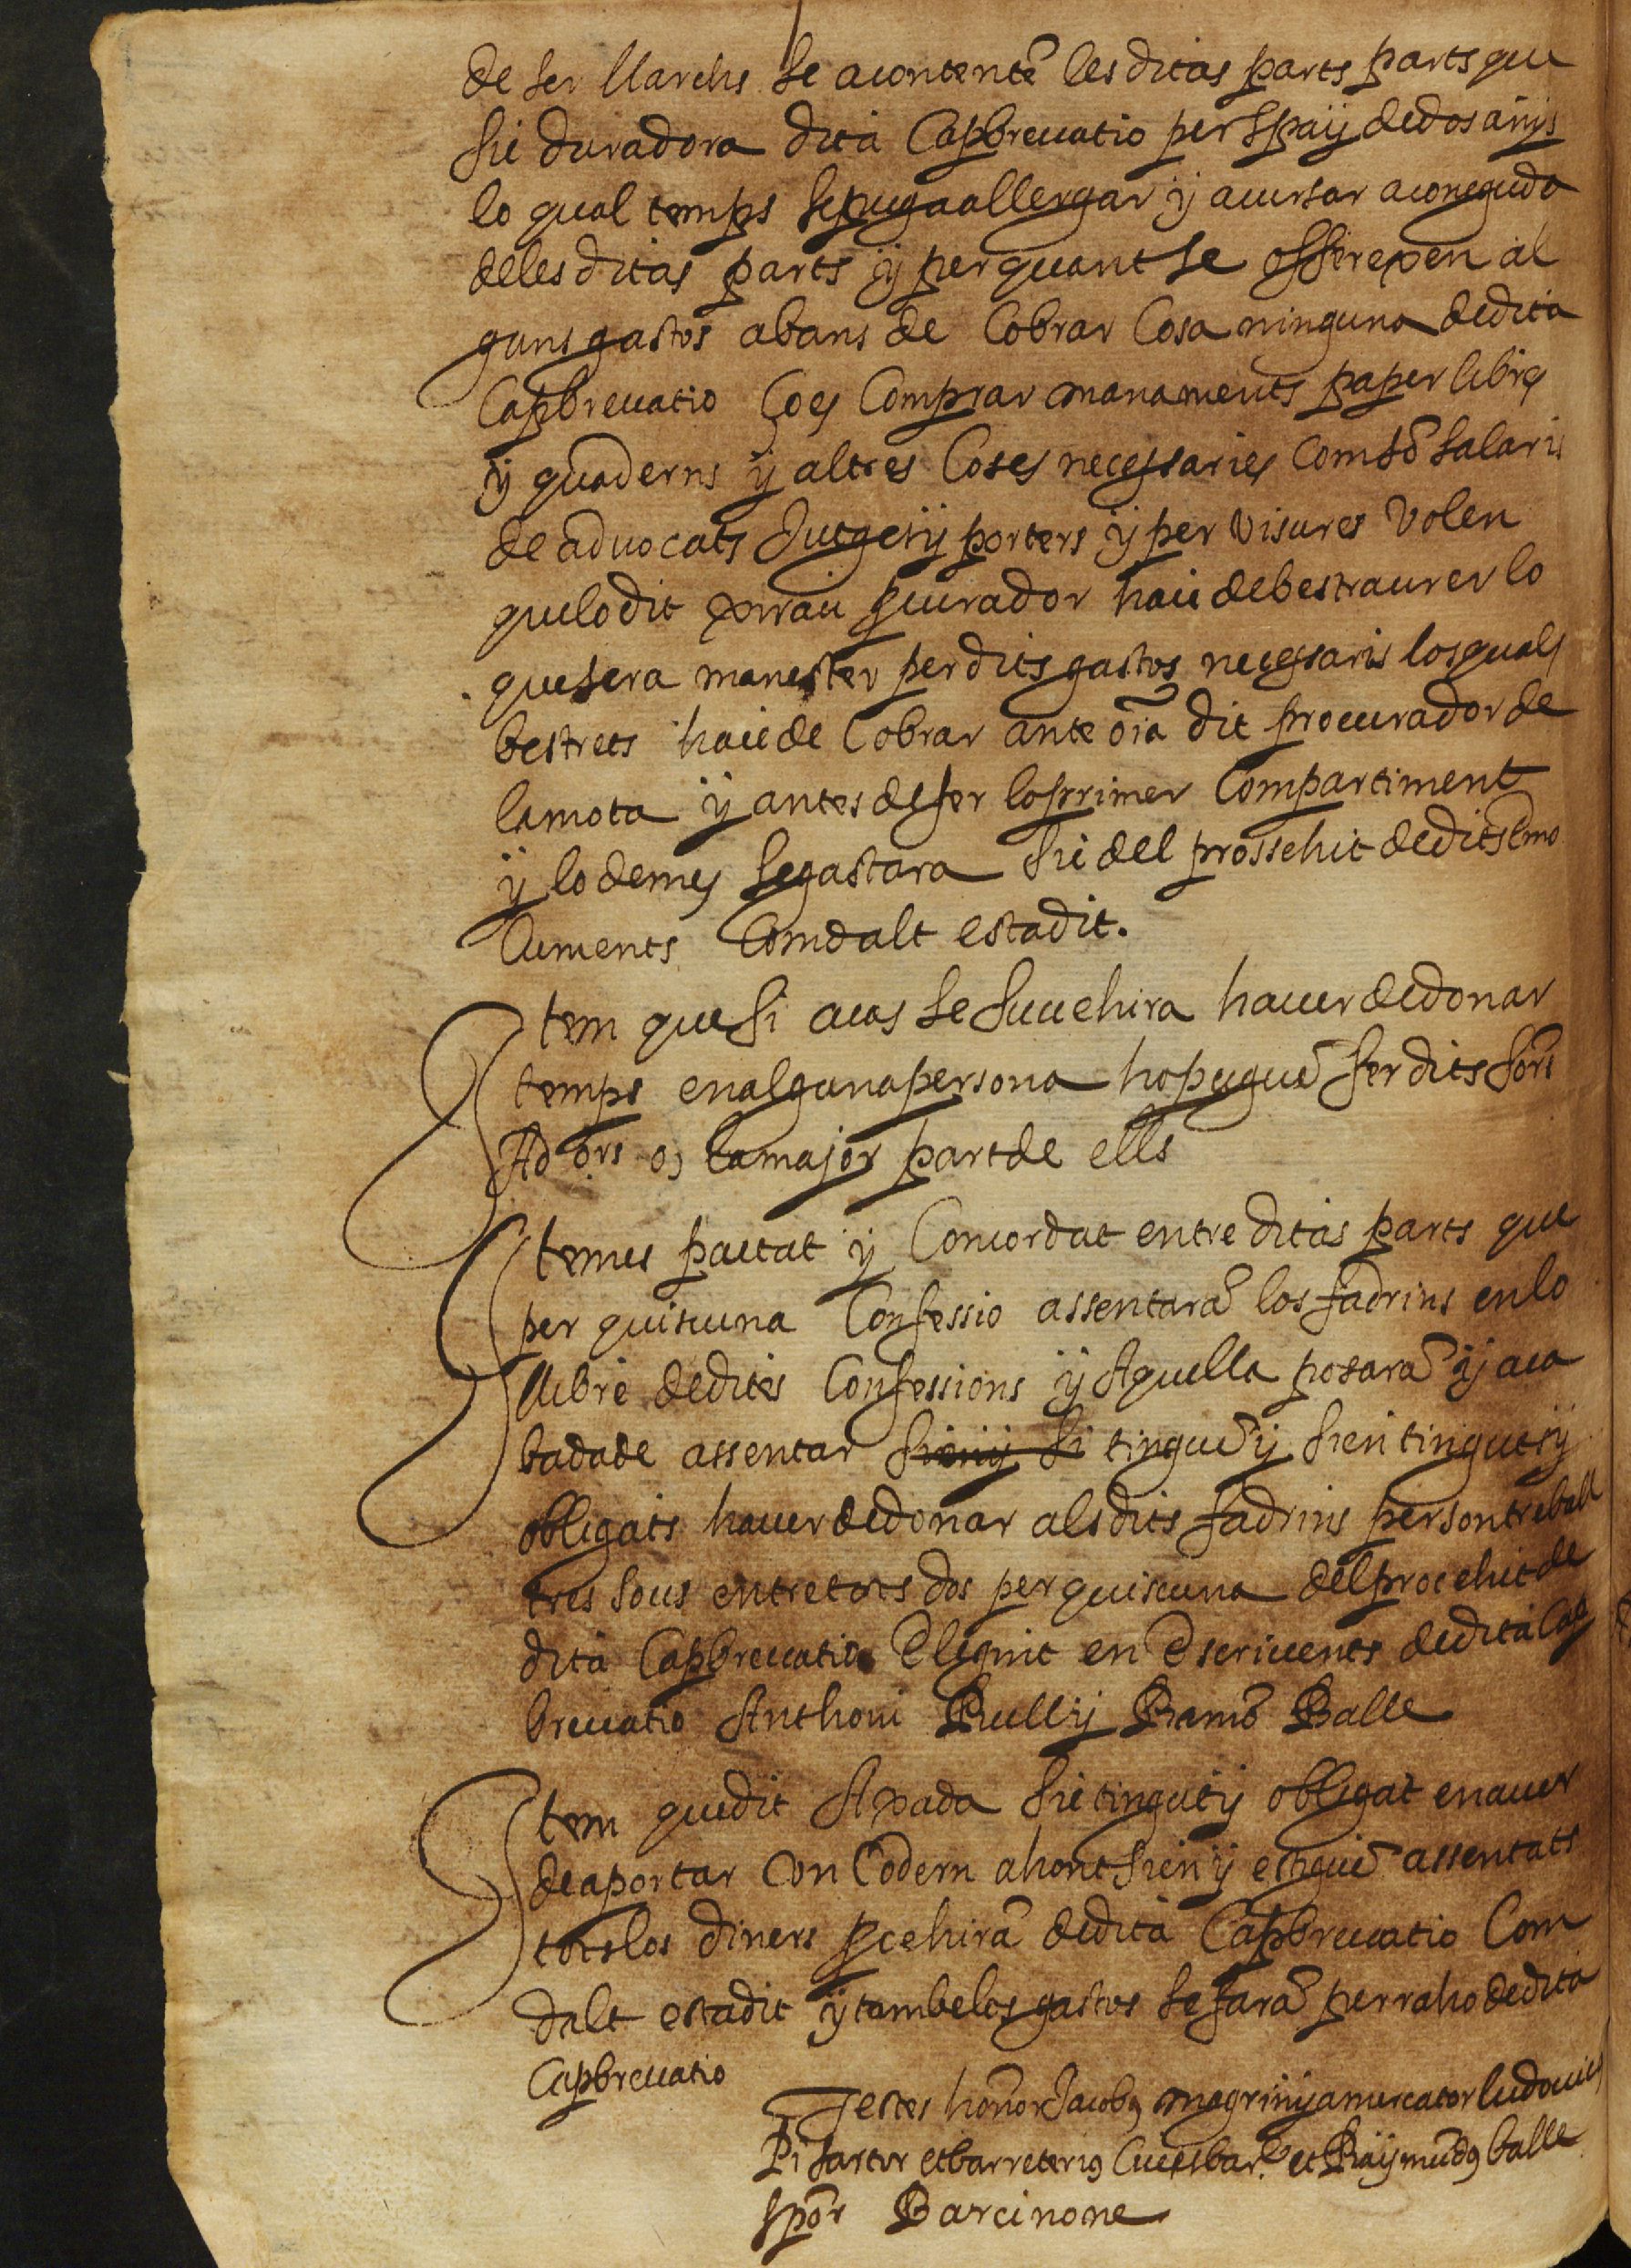 de ser llarchs se acontentē les ditas parts parts que
sie duradora dita Capbreuatio per spay de dos anys
lo qual temps se puga allergar y acursar a coneguda
de les ditas parts y per quant se offerexen al
guns gastos abans de Cobrar Cosa ninguna de dita
Capbreuatio Ço es Comprar manaments paper libres
y quaderns y altres Coses necessaries Com sō salaris
de aduocats Jutges y porters y per visures volen
que lo dit procurador haie de bestraurer lo
que sera manester per dits gastos necessaris los quals
bestrets haie de Cobrar ante oīa dit procurador de
la mota y antes de fer lo primer Compartiment
y lo demes se gastara sie del prossehit de dits emo
luments Com dalt esta dit.
Item que si acas se succehira hauer de donar
temps en alguna persona ho puguē fer dits sors
Adors o, la major part de ells
Item es pactat y Concordat entre ditas parts que
per quiscuna Confessio assentarā los fadrins en lo
llibre de dites Confessions y Aquella posarā y aca
bada de assentar sien y si tinguē y sien tinguts y
obligats hauer de donar als dits fadrins per son treball
tres sous entre tots dos per quiscuna del procehit de
dita Capbreuatio Elegint en Escriuents de dita Cap
breuatio Anthoni Rull y Ramō Balle
Item que dit Apada sie tingut y obligat en auer
de aportar Con Codern ahont sien y estiguē assentats
tots los diners pcehirā de dita Capbreuatio Com
dalt esta dit y tambe los gastos se farā per raho de dita
Capbreuatio
Testes honor Jacobus magrinya mercator ludouicus
Pi sartor et barreterius Ciues bar. et Raymūdus balle
spōr Barcinone